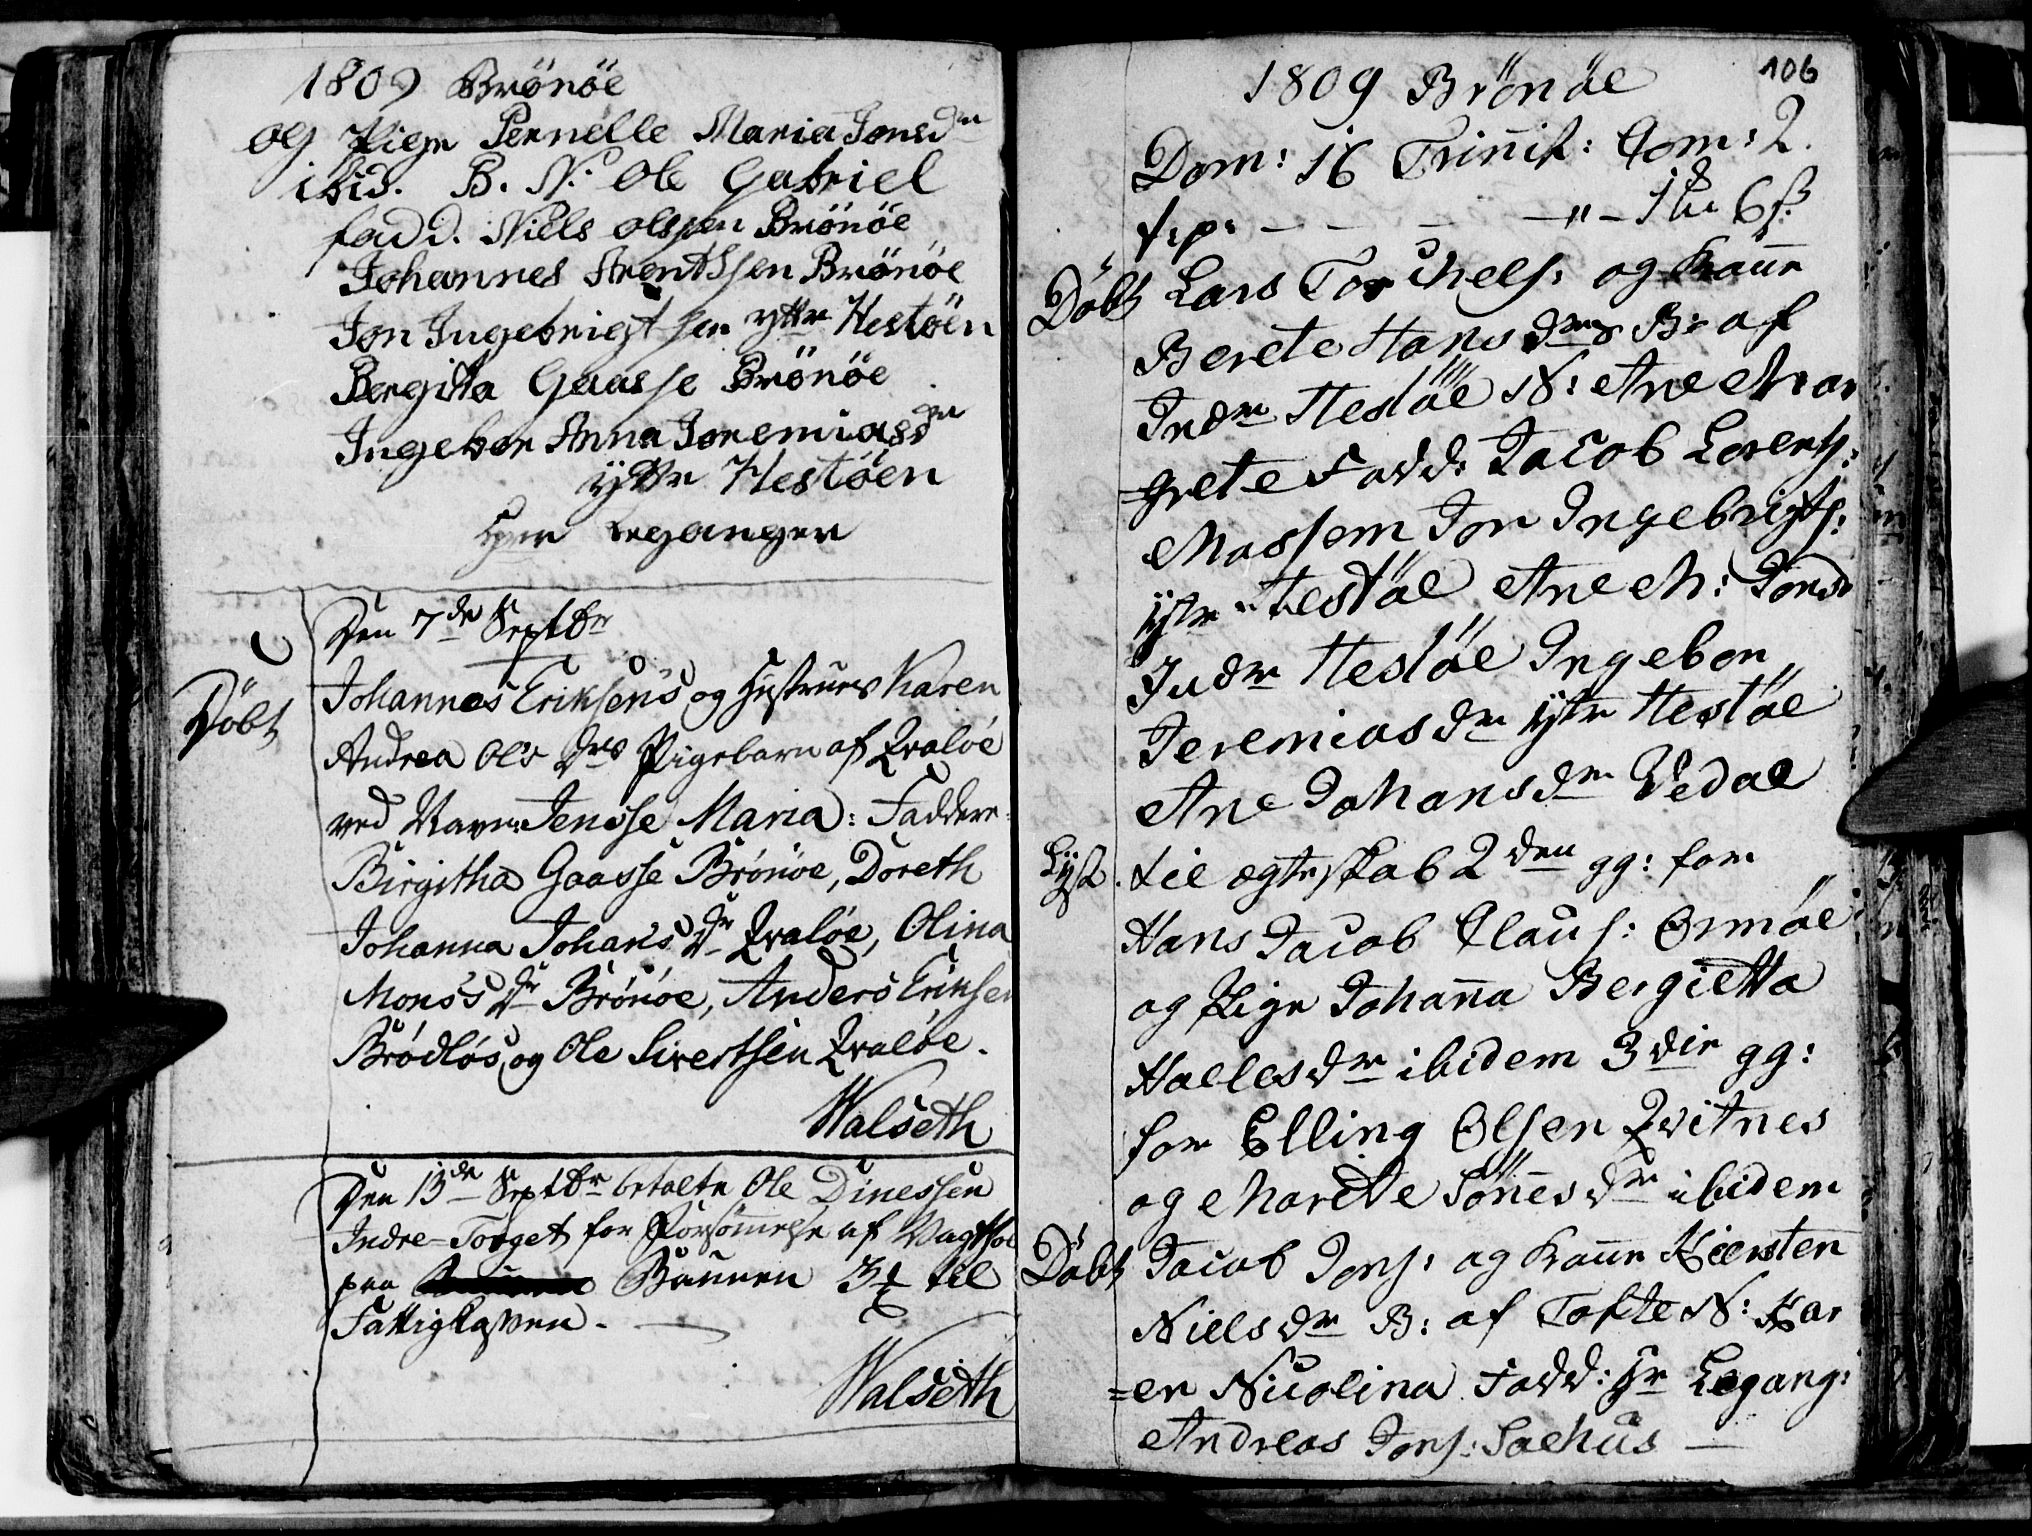 1809 Brönöe
og Pige Pernelle Maria Jonsdr
ibid. B. N. Ole Gabriel
fadd. Niels Olssen Brönöe
Johannes Arentssen Brönöe
Jon Ingebrigtsen yttre Hestöen
Bergitta Gaasse Brönöe
Ingebor Anna Jeremiasdr
yttre Hestöen
Legangen
Den 7de Septbr
Döbt
Johannes Eriksens og Hustrues Karen
Andrea Ols Drs Pigebarn af Qvalöe
ved Navn Jensse Maria: Faddere
Birgitha Gaasse Brönöe, Doreth
Johanna Johans Dr Qvalöe, Olina
Mons's Dr Brönöe, Anders Eriksen
Brödlös, og Ole Sivertsen Qvalöe.
Walseth
Den 13de Septbr betalte Ole Dinessen
Indre-Torget for Forsömmelse af Vagthol
paa Baunen til
Fattigkassen.
Walseth
1809 Brönöe
106
Dom: 16 Trinit: Com: 2.
f:p: - - - - " -
Döbt Lars Torchels: og Kone
Berete Hansdrs B: af
Indre Hestöe N: Ane Mar
=grete Fadd: Jacob Lorents:
Massem Jon Ingebrigts:
ytre Hestöe Ane M: Jonsd
Indre Hestöe Ingebor
Jeremiasdr ytre Hestöe
Ane Johansdr Vedae
Lyst. til ægteskab 2den gg: for
Hans Jacob Claus: Ormöe
og Pige Johanna Bergietta
Hallesdr ibidem 3die gg:
for Elling Olsen Qvitnes
og Marette Sönnesdr ibidem
Döbt Jacob Jons: og Kone Kiersten
Nielsdr B: af Tofte N: Kar
=en Nicolina Fadd: Hr Legang:
Andreas Jons: Saehus -